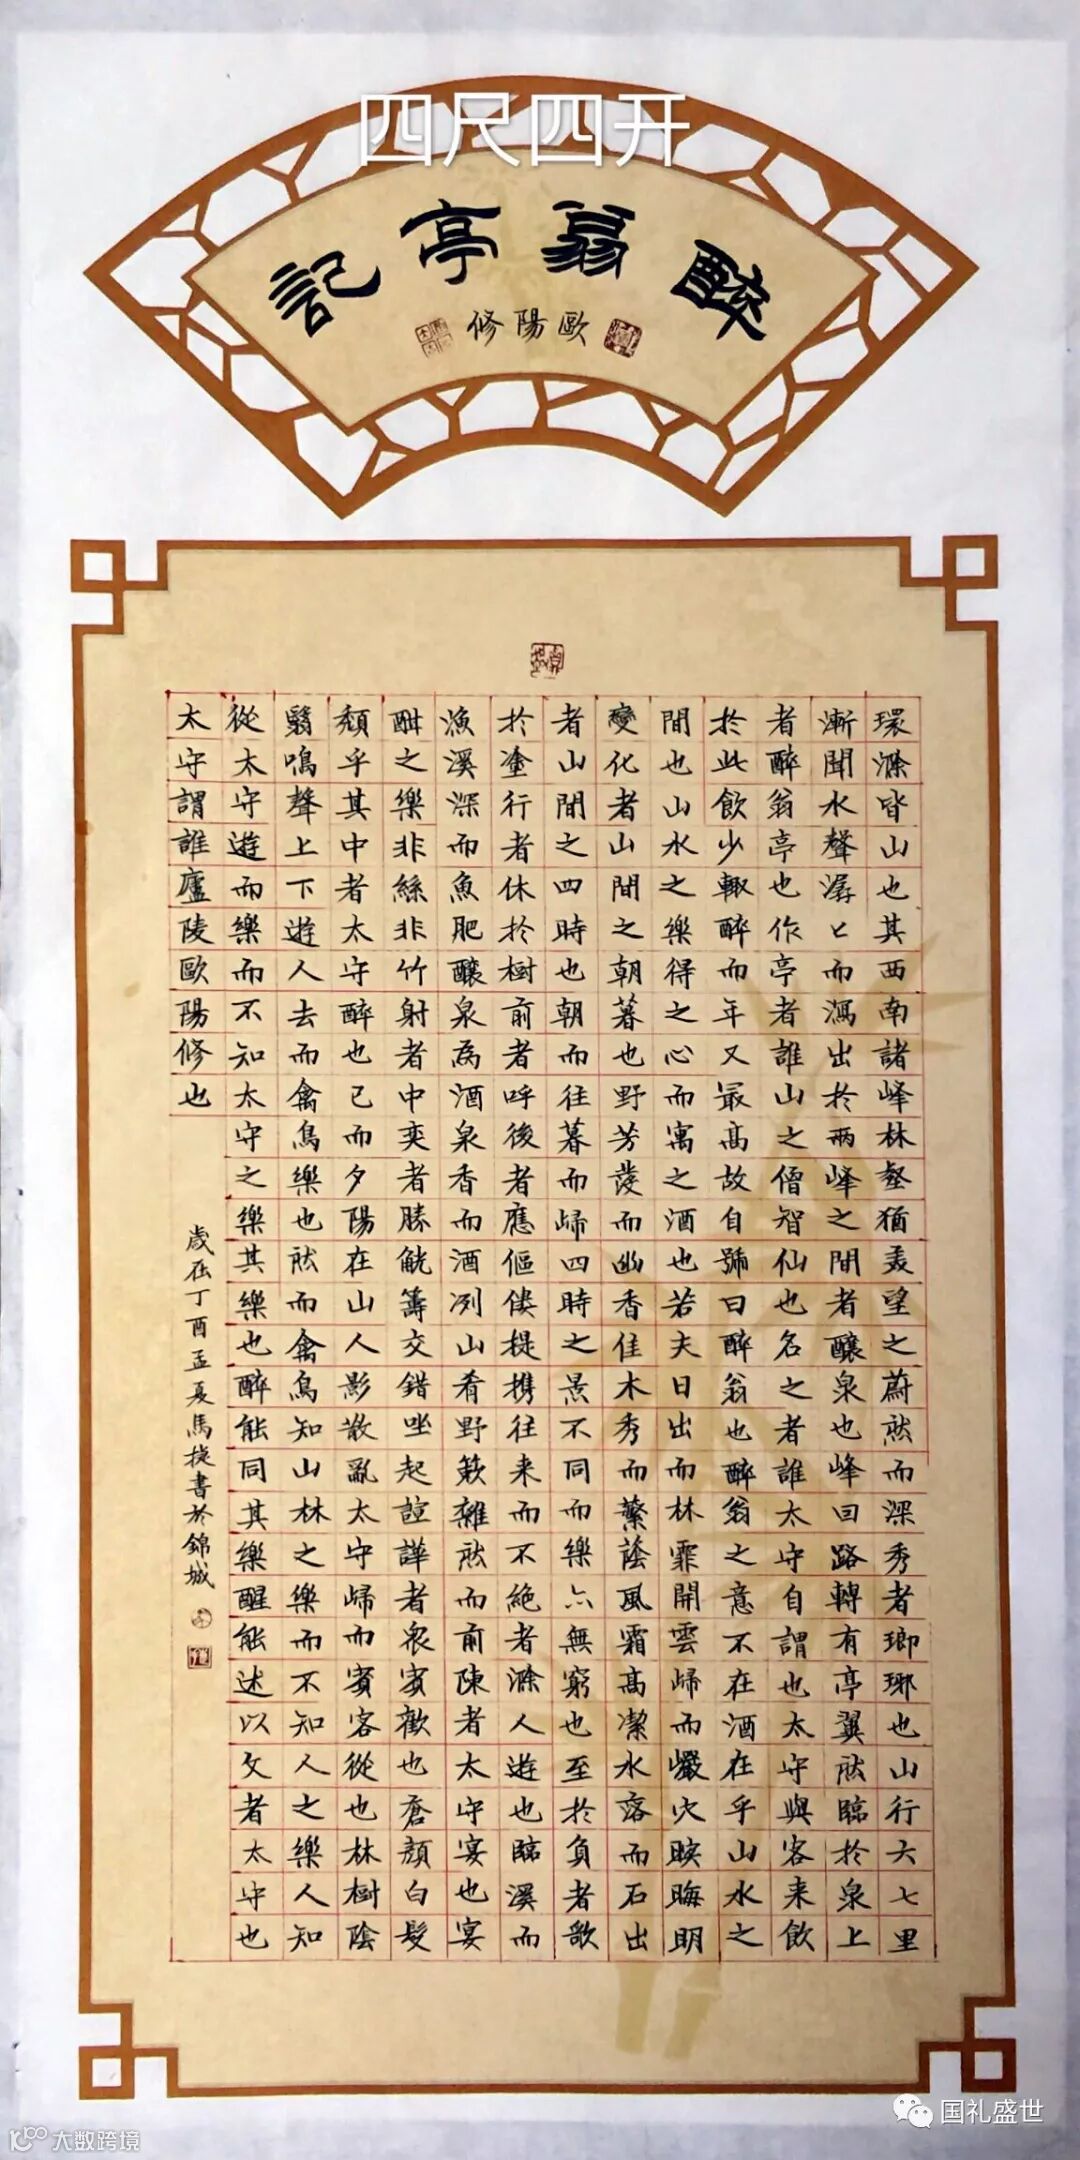 四尺四开
醉翁亭記
歐陽修
環滁皆山也其西南諸峰林壑猶美望之蔚然而深秀者瑯琊也山行六七里
漸聞水聲潺匕而瀉出於兩峰之間者釀泉也峰回路轉有亭翼然臨於泉上
者醉翁亭也作亭者誰山之僧智仙也名之者誰太守自謂也太守與客来飲
於此飲少輒醉而年又最高故自號曰醉翁也醉翁之意不在酒在乎山水之
間也山水之樂得之心而寓之酒也若夫日出而林霏開雲歸而巖穴暝晦明
變化者山間之朝暮也野芳發而幽香佳木秀而繁蔭風霜高潔水落而石出
者山間之四時也朝而往暮而歸四時之景不同而樂亦無窮也至於負者歌
於塗行者休於樹前者呼後者應傴僂提攜往来而不絕者滁人遊也臨溪而
漁溪深而魚肥釀泉為酒泉香而酒冽山肴野蔌雜然而前陳者太守宴也宴
酣之樂非絲非竹射者中奕者勝觥籌交錯坐起諠譁者眾賓歡也蒼顏白髮
頹乎其中者太守醉也已而夕陽在山人影散亂太守歸而賓客從也林樹陰
翳鳴聲上下遊人去而禽鳥樂也然而禽鳥知山林之樂而不知人之樂人知
從太守遊而樂而不知太守之樂其樂也醉能同其樂醒能述以文者太守也
太守謂誰廬陵歐陽修也
歲在丁酉孟夏馬捷書於錦城
国礼盛世
大数跨境